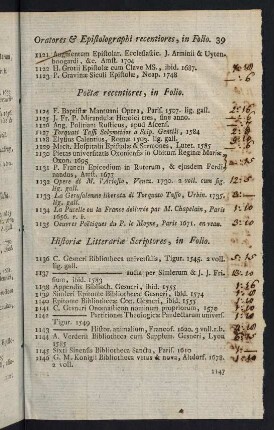 Oratores & Epistolographi recentiores, in Folio. 39
1121 Epistolar. Ecclesiasticæ. J. Arminii & Uyten-
boogardi, &c. Amst. 1704
1122 H. Grotii Epistolæ cum Clave MS., ibid. 1687.
1123 P. Gravinæ Siculi Epistolæ, Neap. 1748
Poëtæ recentiores, in Folio.
1124 F. Baptistæ Mantuani Opera, Paris. 1507. lig. gall.
1125 J. Fr. P. Mirandulæ Heroici
1126 Ang. Politiani Rusticus, apud Ascens.
1127 Torquati Tassi Solymeidos a Scip. Gentili, 1584
1128 Elysius Calentius, Roma 1503. lig. gall.
1129 Mich. Hospitalii Epistolæ & Sermones, Lutet. 1585
1130 Pietas universitatis Oxoniensis in Obitum Reginæ Mariæ,
Oxon. 1695
1131 P. Francii Epicedium in Ruterum, & ejusdem Ferdi-
nandus, Amst.
1132 Opere di M. l'Ariosto, Venez. 1730. 2 voll. cum fig.
lig. gall.
1133 La Gerusalemme liberata di Torquato Tasso, Urbin. 1735.
lig. gall.
1134 La Pucelle ou la France delivrée par M. Chapelain, Paris
1656.
1135 Oeuvres Poëtiques du P. le Moyne, Paris 1671. en veau.
Historiæ Litterariæ Scriptores, in Folio.
1136 C. Gesneri Bibliotheca universalis, Tigur. 1545. 2 voll.
lig. gall.
1137 aucta per Simlerum & J. J. Fri-
sium, ibid. 1583
1138 Appendix Biblioth. Gesneri, ibid. 1555
1139 Simleri Epitome Bibliothecæ Gesneri, ibid. 1574
1140 Epitome Bibliothecæ Cor. Gesneri, ibid. 1555
1141 C. Gesneri Onomasticon nominum propriorum, 1570
1142 Partitiones Theologicæ Pandectarum univers.
Tigur. 1549
1143 Histor. animalium, Francof. 1620. 3 voll.
1144 A. Verderii Bibliotheca cum Supplem. Gesneri, Lyon
1585
1145 Sixti Sinensis Bibliotheca sancta, Paris. 1610
1146 G. M. Konigii Bibliotheca vetus & nova, Altdorf. 1678.
2 voll.
1147